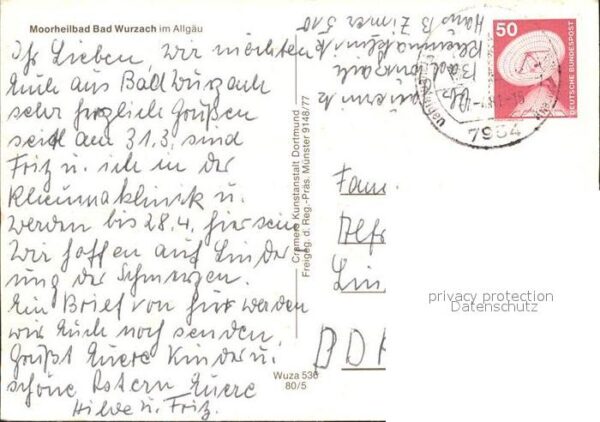 Moorheilbad Bad Wurzach im Allgäu
Ihr Lieben, wir möchten
Euch aus Bad Wurzach
sehr herzlich Grüßen
seit am 31.3. sind
Fritz u. ich in der
Rheumaklinik u.
werden bis 28.4. hier sein
Wir hoffen auf Linder
ung der Schmerzen.
Ein Brief von hier werden
wir Euch noch senden,
Grüßt Euere Kinder u.
schöne Ostern Euere
Hilde u. Fritz.
Cramers Kunstanstalt Dortmund
Freigeg. d. Reg.-Präs. Münster 9148/77
Wuza 536
80/5
Rheumaklinik
Bad Wurzach
Haus B Zimmer 510
50
DEUTSCHE BUNDESPOST
7954
Fam
Alfr
Lin
BD
privacy protection
Datenschutz